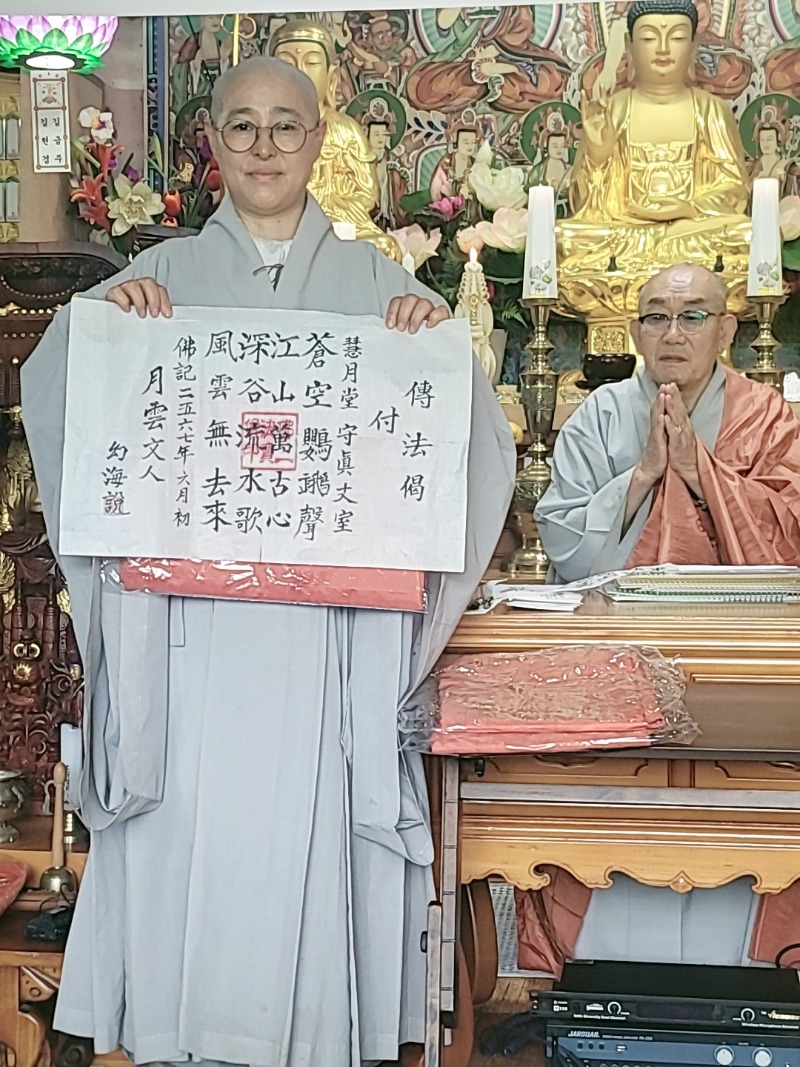 傳法偈
付
慧月堂 守眞丈室
蒼空鸚鵡聲
江山萬古心
深谷流水歌
風雲無去來
佛記二五六七年 六月初
月雲文人
幻海說
김금주
김현경
JARGUAR